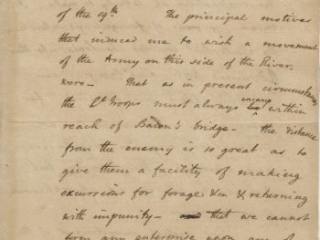 of the 19th. The principal motives
that induced me to wish a movement
of the Army on this side of the River,
were— That as in present circumstances
the Ct Troops must always enjoy within
reach of Bacon's bridge— the distance
from the enemy is so great as to
give them a facility of making
excursions for forage &ca & returning
with impunity— that we cannot
form any enterprise upon any